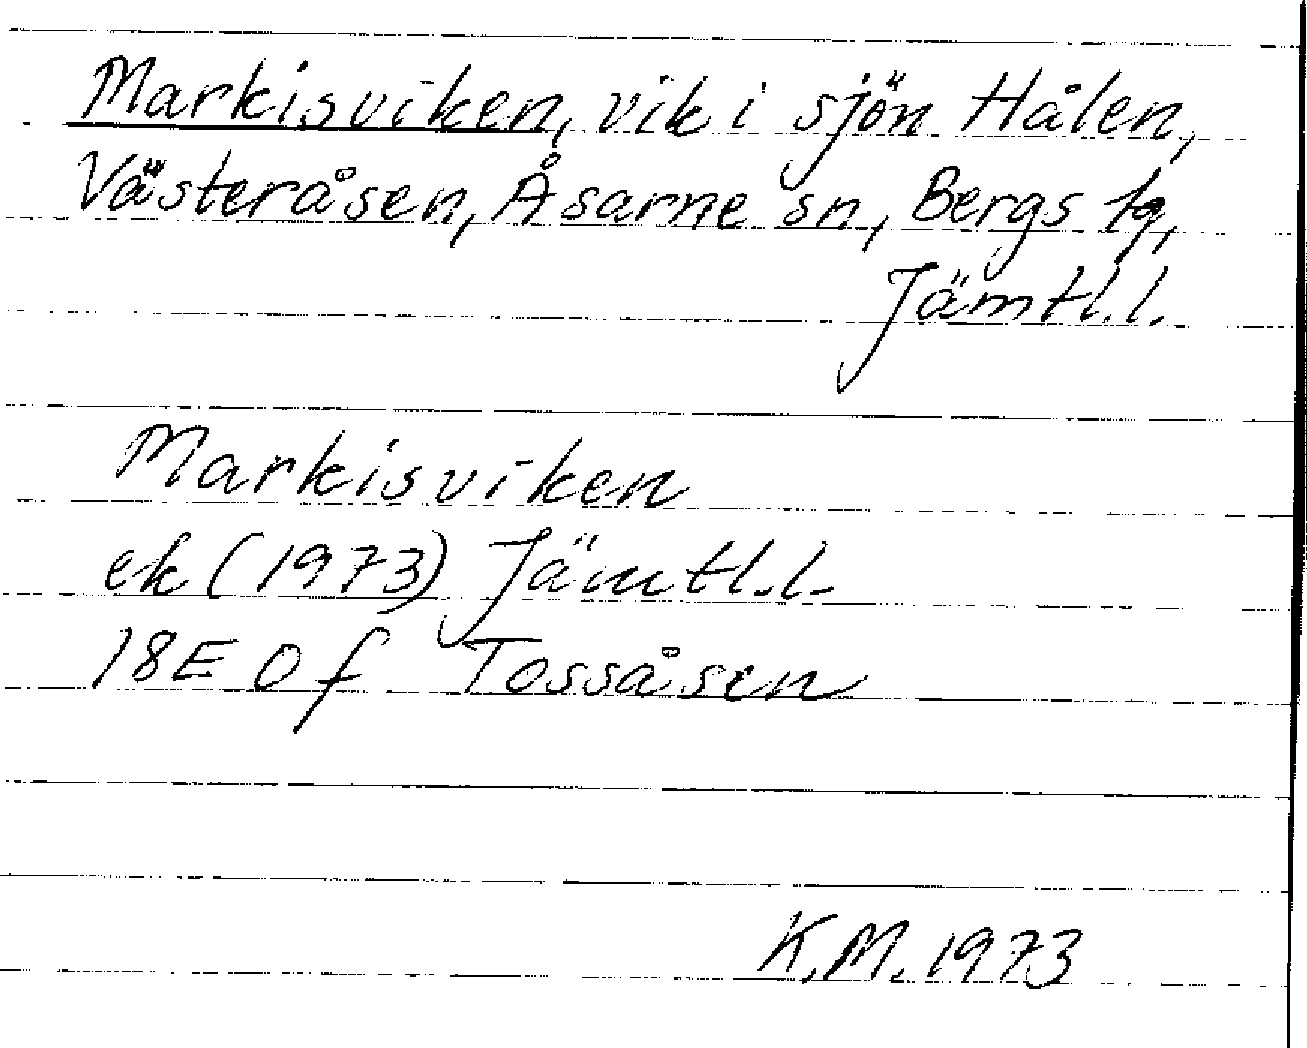 Markisviken, vik i sjön Hålen,
Västeråsen, Åsarne sn, Bergs tg,
Jämtl.l.
Markisviken
ek (1973) Jämtl.l.
18E 0f Tossåsen
K.M. 1973